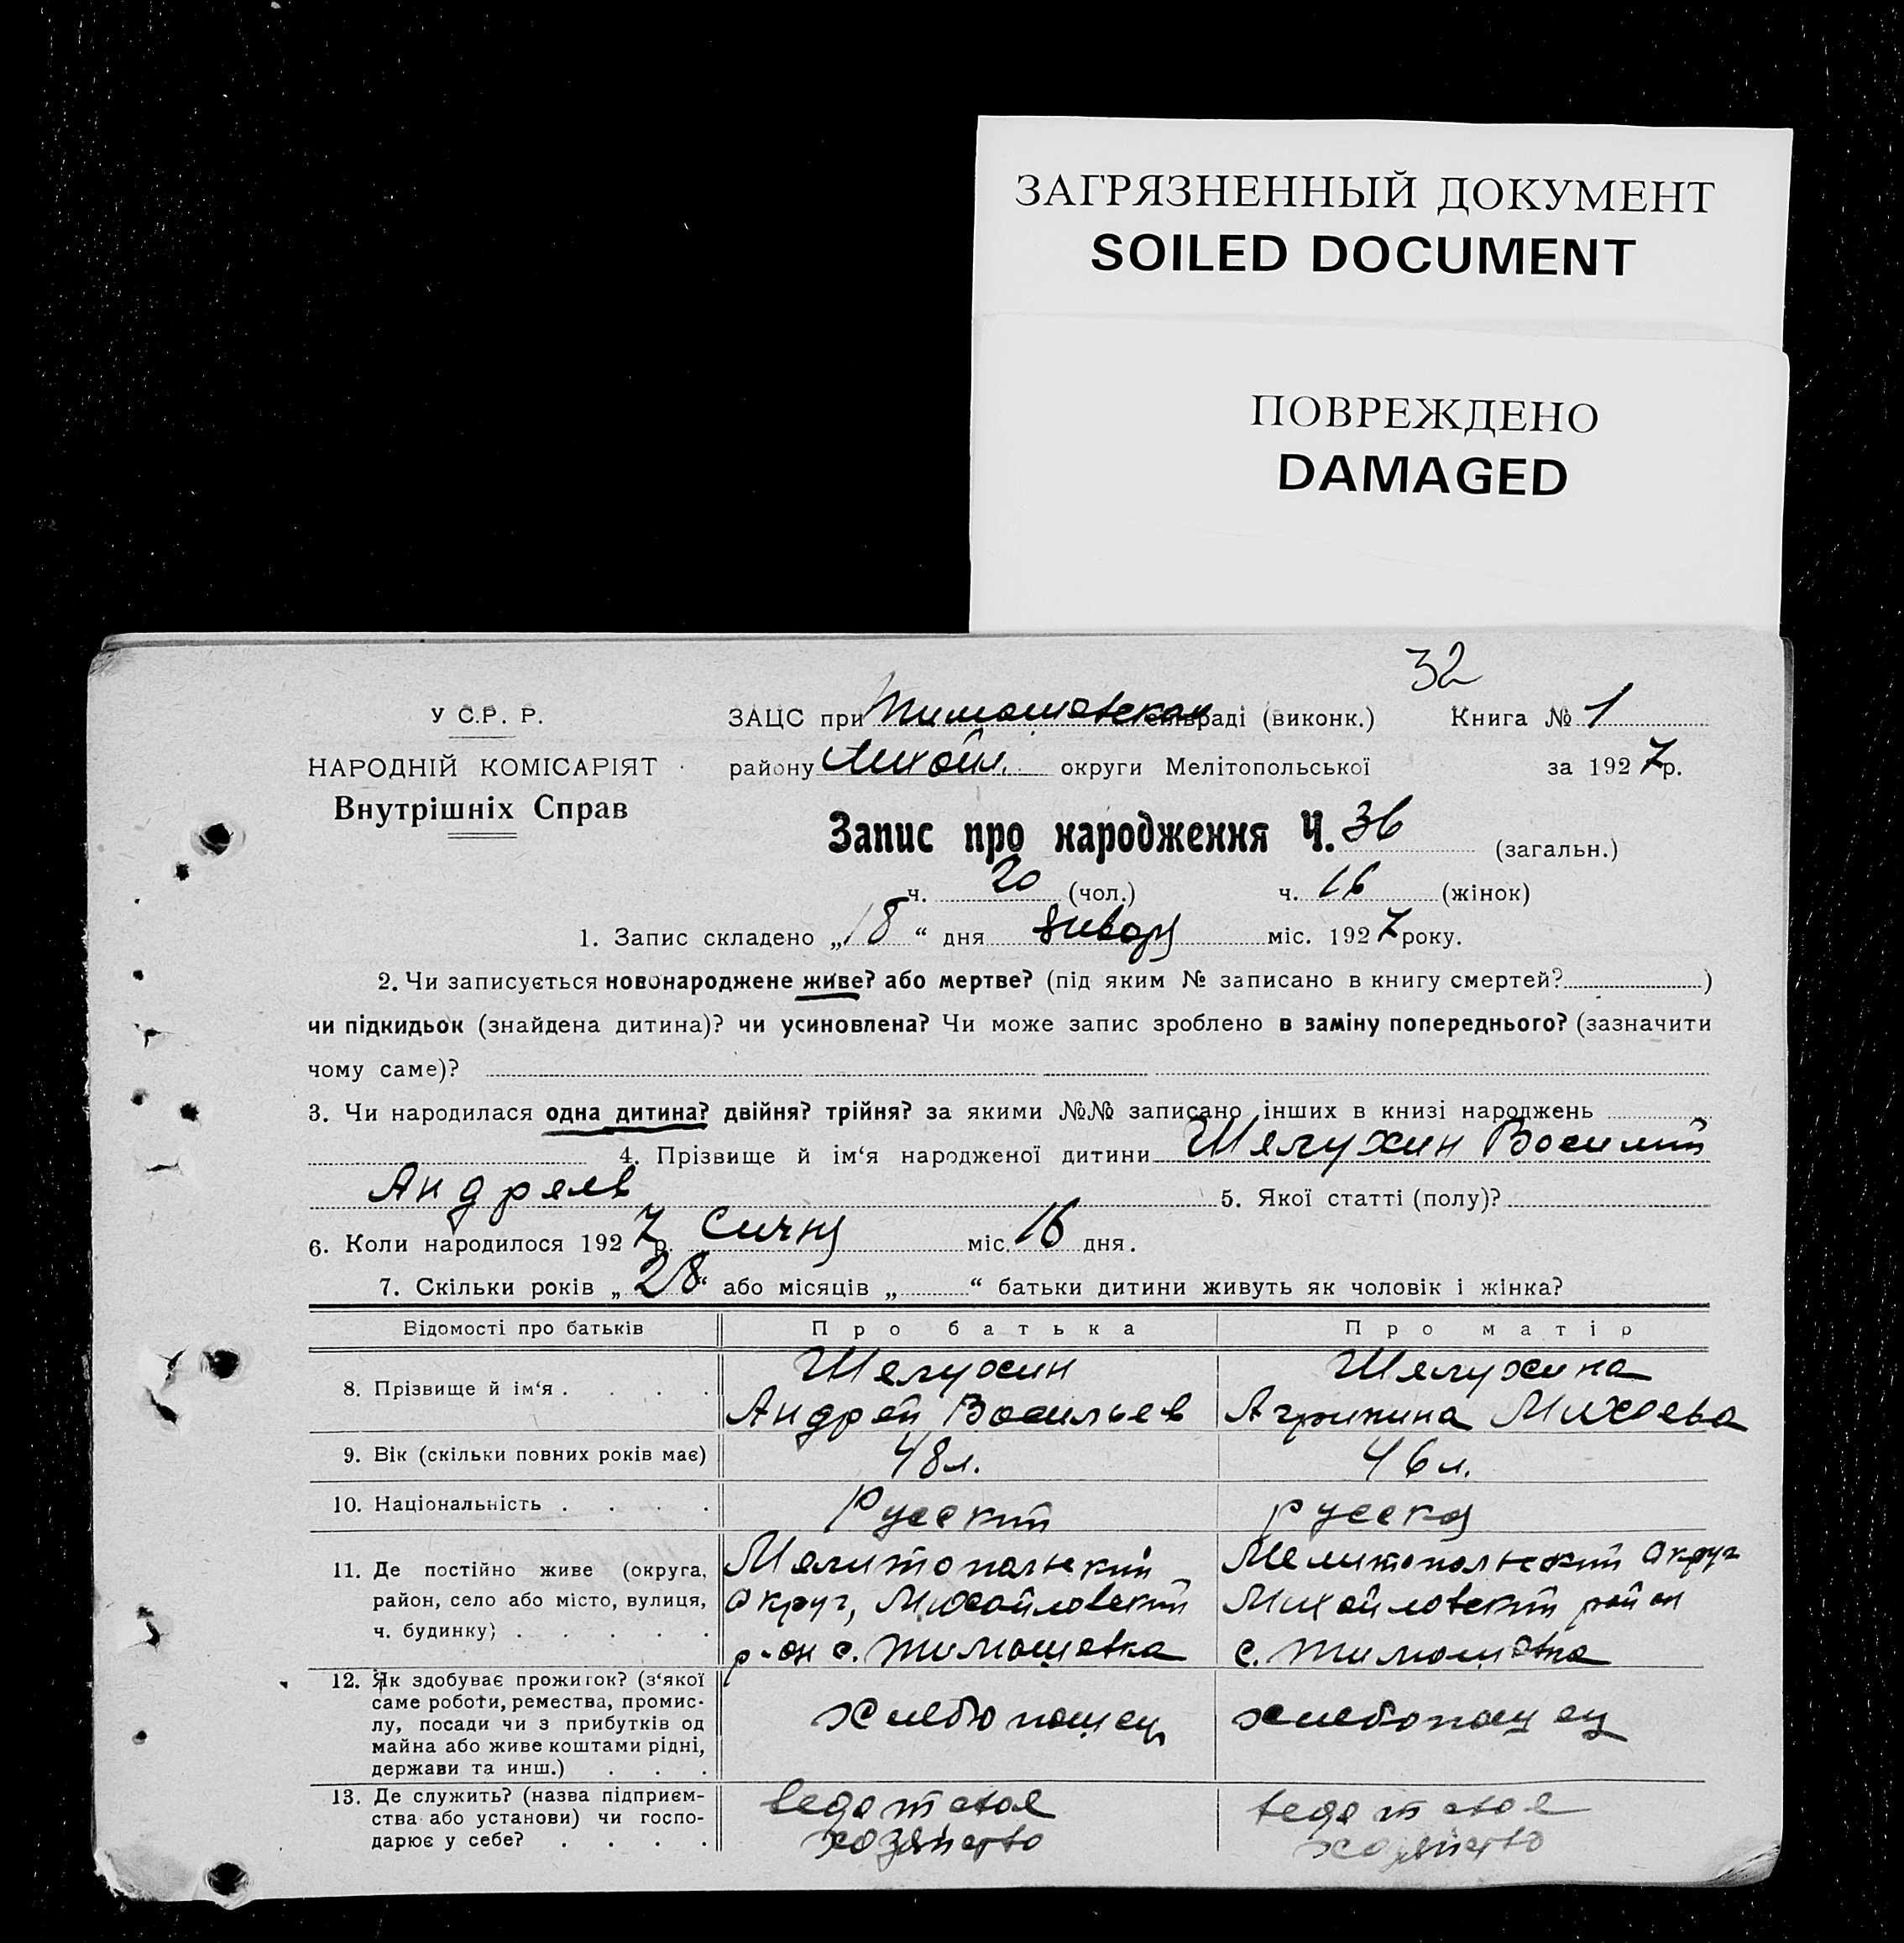 ЗАГРЯЗНЕННЫЙ ДОКУМЕНТ
SOILED DOCUMENT
ПОВРЕЖДЕНО
DAMAGED
32
У С.Р. Р.
НАРОДНІЙ КОМІСАРІЯТ
Внутрішніх Справ
ЗАЦС при Тимошовском сільраді (виконк.) Книга № 1
району Михайл. округи Мелітопольської за 1927 р.
Запис про народження Ч. 36 (загальн.)
ч. 20 (чол.) ч. 16 (жінок)
1. Запис складено „18“ дня январ міс. 1927 року.
2. Чи записується новонароджене живе? або мертве? (під яким № записано в книгу смертей? )
чи підкидьок (знайдена дитина)? чи усиновлена? Чи може запис зроблено в заміну попереднього? (зазначити
чому саме)?
3. Чи народилася одна дитина? двійня? трійня? за якими №№ записано інших в книзі народжень
4. Прізвище й ім‘я народженої дитини Шелухин Василий
Андреев 5. Якої статті (полу)?
6. Коли народилося 1927 р. Сичня міс. 16 дня.
7. Скільки років „28“ або місяців „ “ батьки дитини живуть як чоловік і жінка?
Відомості про батьків Про батька Про матір
8. Прізвище й ім‘я . . . . Шелухин Шелухина
Андрей Васильев Агрипина Михеева
9. Вік (скільки повних років має) 48 л. 46 л.
10. Національність . . . . Русский русская
11. Де постійно живе (округа, Мелитопольский Мелитопольский округ
район, село або місто, вулиця, округ, Михайловский Михайловский район
ч. будинку) . . . . . р-он с. Тимошовка с. Тимошовка
12. Як здобуває прожиток? (з‘якої
саме роботи, ремества, промис-
лу, посади чи з прибутків од хлебопашец хлебопашец
майна або живе коштами рідні,
держави та инш.) . . .
13. Де служить? (назва підприєм- ведет свое ведет свое
ства або установи) чи госпо- хозяйство хозяйство
дарює у себе? . . . .